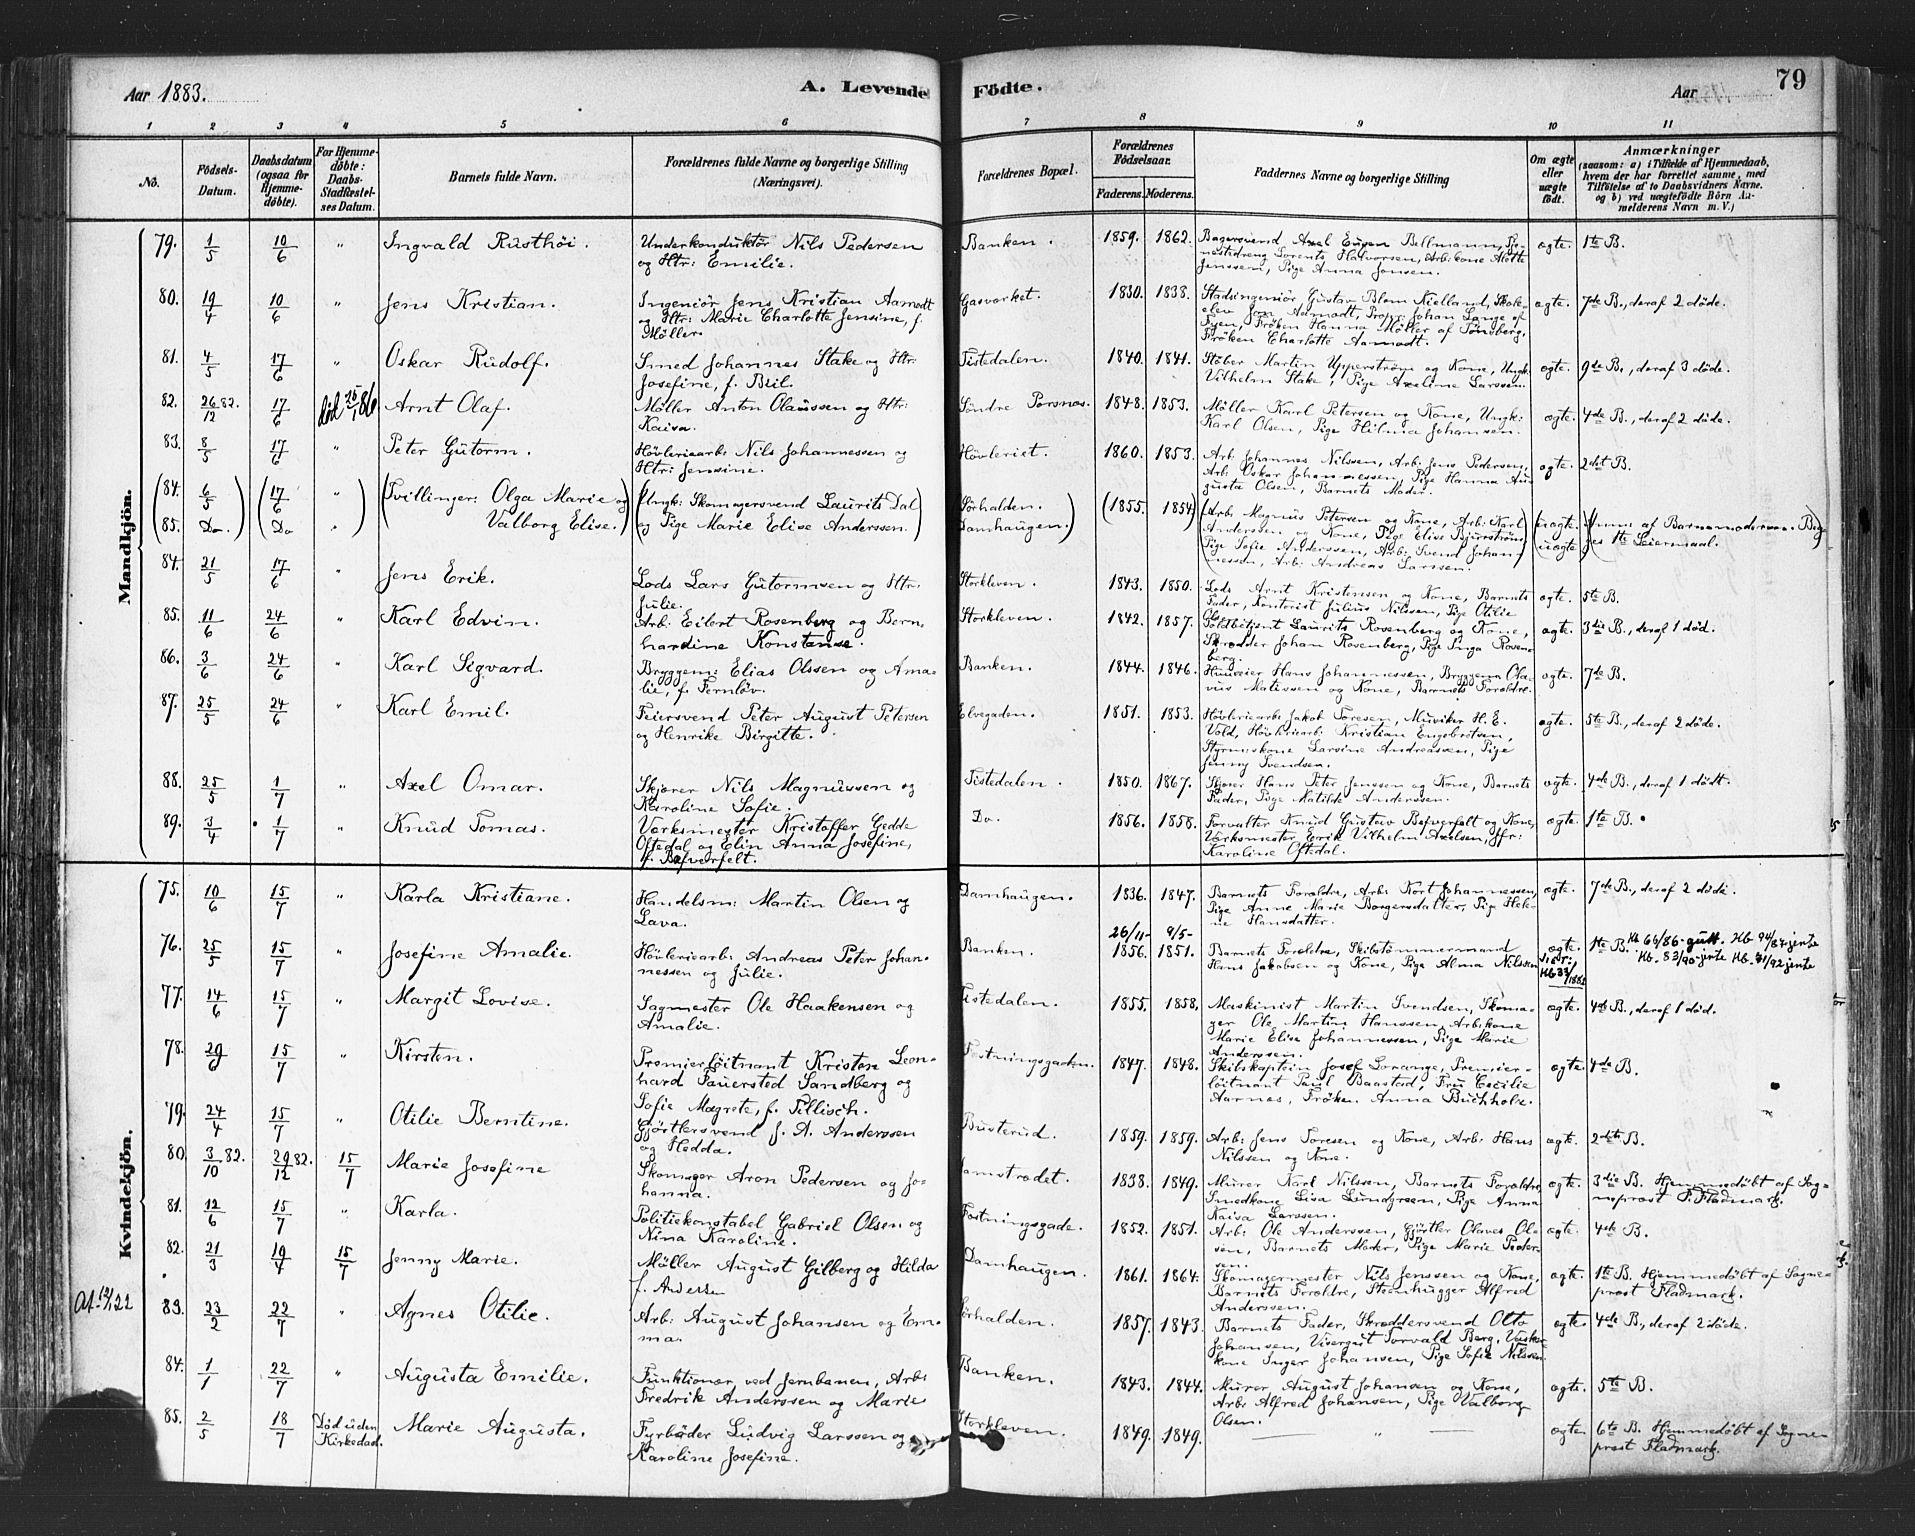 Aar 1883.
A. Levende Födte.
Aar
79
1 2 3 4 5 6 7 8 9 10 11
No.
Fødsels-Datum.
Daabsdatum (ogsaa for Hjemme-døbte).
For Hjemme-døbte: Daabs-Stadfæstel-ses Datum.
Barnets fulde Navn.
Forældrenes fulde Navne og borgerlige Stilling (Næringsvei).
Forældrenes Bopæl.
Forældrenes Fødselsaar.
Faderens. Moderens.
Faddernes Navne og borgerlige Stilling
Om ægte eller uægte født.
Anmærkninger
(saasom: a) i Tilfælde af Hjemmedaab,
hvem der har forrettet samme, med
Tilføielse af to Daabsvidners Navne.
og b) ved uægtefødte Börn An-
melderens Navn m. V.)
Mandkjön.
79. 1/5 10/6 " Ingvald Rusthöi. Underkonduktör Nils Pedersen
og Htr: Emilie. Banken. 1859. 1862. Bagersvend Axel Eugen Bellmann,
Lorents Halvorsen, Arb: kone
Jenssen, Pige Anna Jonsen. ægte. 1ste B.
80. 19/4 10/6 " Jens Kristian. Ingeniör Jens Kristian Aamodt
og Htr: Marie Charlotte Jensine, f.
Möller. Gasverket. 1830. 1838. Stadsingeniör, Gustav Blom Kielland, Skole-
elev Jon Aamodt, Propr: Johan Lange af
Fyen, Fröken Hanna Möller af Tönsberg,
Fröken Charlotte Aamodt. ægte. 7de B., deraf 2 döde.
81. 4/5 17/6 " Oskar Rudolf. Smed Johannes Stake og Htr:
Josefine, f. Beil. Tistedalen. 1840. 1841. Stöber Martin Upperström og Kone, Ungk:
Vilhelm Stake, Pige Axeline Larssen. ægte. 9de B., deraf 3 döde.
82. 26/12 82. 17/6 död 25/1 86 Arnt Olaf. Möller Anton Olaussen og Htr:
Kaisa. Söndre Porsnæs. 1848. 1853. Möller Karl Petersen og Kone, Ungk:
Karl Olsen, Pige Hilma Johansen. ægte. 4de B., deraf 2 döde.
83. 8/5 17/6 " Peter Gutorm. Hövleriearb: Nils Johannessen og
Htr: Jensine. Hövleriet. 1860. 1853. Arb: Johannes Nilssen, Arb: Jens Pedersen,
Arb: Oskar Johannessen, Pige Hanna Au-
gusta Olsen, Barnets Moder. ægte. 2det B.
(84. 6/5 17/6 " Tvillinger: Olga Marie og (Ungk: Skomagersvend Laurits Dal Sörhalden. (1855. 1854) Arb: Magnus Petersen og Kone, Arb: Karl uægte
(85. Do. Do " Valborg Elise.) og Pige Marie Elise Anderssen.) Damhaugen.) Anderssen og Kone, Pige Elise Bjerström
Pige Sofie Anderssen, Arb: Svend Johan-
nessen, Arb: Andreas Larssen. uægte (Anm: af Barnemoderen. Beg-
ges 1ste Leiermaal.
84. 21/5 17/6 " Jens Erik. Lods Lars Gutormsen og Htr:
Julie. Storkleven. 1843. 1850. Lods Arnt Kristensen og Kone, Barnets
Fader, Kontorist Julius Nilssen, Pige Otilie ægte. 5te B.
85. 11/6 24/6 " Karl Edvin. Arb: Eilert Rosenberg og Bern-
hardine Konstanse. Storkleven. 1842. 1857. Toldbetjent Laurits Rosenberg og Kone,
Skrædder Johan Rosenberg, Pige Inga Rosen-
berg. ægte. 3die B., deraf 1 död.
86. 3/6 24/6 " Karl Sigvard. Bryggem: Elias Olssen og Ama-
lie, f. Fernlöv. Banken. 1844. 1846. Husveier Hans Johannessen, Bryggem: Ola-
vus Matissen og Kone, Barnets Forældre. ægte. 7de B.
87. 25/5 24/6 " Karl Emil. Feiersvend Peter August Petersen
og Henrike Birgitte. Elvegaden. 1851. 1853. Hövleriearb: Jakob Toresen, Musiker H. E.
Vold, Hövleriearb: Kristian Engebretsen,
Styrmandskone Larsine Andreassen, Pige
Jenny Svendsen. ægte. 5te B., deraf 2 döde.
88. 25/5 1/7 " Axel Omar. Skjærer Nils Magnussen og
Karoline Sofie. Tistedalen. 1850. 1867. Skjærer Hans Peter Jenssen og Kone, Barnets
Fader, Pige Matilde Anderssen. ægte. 4de B., deraf 1 dödt.
89. 3/4 1/7 " Knud Tomas. Værksmester Kristoffer Gedde
Oftedal og Elin Anna Josefine,
f. Bæfverfelt. Do. 1856. 1858. Forvalter Knud Gustav Bæfverfelt og Kone,
Værksmester Erik Vilhelm Axelsen, Jfr:
Karoline Oftedal. ægte. 1ste B.
Kvindekjön.
75. 10/6 15/7 " Karla Kristiane. Handelsm: Martin Olsen og
Lava. Damhaugen. 1836. 1847. Barnets Forældre, Arb: Kort Johannessen,
Pige Anne Marie Borgersdatter, Pige Hele-
ne Hansdatter. ægte. 7de B., deraf 2 döde.
76. 25/5 15/7 " Josefine Amalie. Hövleriearb: Andreas Peter Johan-
nessen og Julie. Banken. 26/11-1856. 9/5-1851. Barnets Forældre, Skibstömmermand
Hans Jakobsen og Kone, Pige Alma Nilssen. ægte. 1ste B. Kb 66/86-gutt. Kb 94/87 jente
Kb. 83/90-jente Kb. 41/92 jente
77. 14/6 15/7 " Margit Lovise. Sagmester Ole Haakensen og
Amalie. Tistedalen. 1855. 1858. Maskinist Martin Svendsen, Skoma-
ger Ole Martin Hanssen, Arb:kone
Marie Elise Johannessen, Pige Marie
Anderssen. ægte. 4de B., deraf 1 död.
78. 29/6 15/7 " Kirsten. Premierlöitnant Kristen Leon-
hard Fauersted Sandberg og
Sofie Magrete, f. Tillisch. Fæstningsgaden. 1847. 1848. Skibskaptein Josef Lorange, Premier-
löitnant Paul Baastad, Fru Cecilie
Aarnæs, Fröken Anna Buchholz. ægte. 4de B.
79. 24/4 15/7 " Otilie Berntine. Gjörtlersvend J. A. Anderssen
og Hedda. Busterud. 1859. 1859. Arb: Jens Toresen og Kone, Arb: Hans
Nilssen og Kone. ægte. 2det B.
80. 3/10 82. 29/12 82. 15/7 Marie Josefine Skomager Aron Pedersen og Jo-
hanna. 1838. 1849. Murer Karl Nilsen, Barnets Forældre,
Smedkone Lisa Lundgreen, Pige Anna
Kaisa Larssen. ægte. 3die B. Hjemmedöbt af Sog-
neprost F. Fladmark.
81. 12/6 15/7 " Karla. Politiekonstabel Gabriel Olsen og
Nina Karoline. Fæstningsgade. 1852. 1851. Arb: Ole Anderssen, Gjörtler Olaves Ol-
sen, Barnets Moder, Pige Marie Peder-
sen. ægte. 4de B.
82. 21/3 19/4 15/7 Jenny Marie. Möller August Gilberg og Hilda
f. Anderssen Damhaugen. 1861. 1864. Skomagermester Nils Jenssen og Kone,
Barnets Forældre, Steenhugger Alfred
Anderssen. ægte. 1ste B. Hjemmedöbt af Sogne-
prost Fladmark.
83. 23/2 22/7 " Agnes Otilie. Arb: August Johansen og Em-
ma. Sörhalden. 1857. 1843. Barnets Fader, Skræddersvend Otto
Johansen, Visergut Torvald Berg, Vasker-
kone Inger Johansen, Pige Sofie Nilssen. ægte. 4de B., deraf 2 döde.
84. 1/1 22/7 " Augusta Emilie. Funktionær ved Jernbanen, Arb:
Fredrik Anderssen og Marie Banken. 1843. 1844. Murer August Johansen og Kone,
Arb: Alfred Johansen, Pige Valborg
Olsen. ægte. 5te B.
85. 2/5 18/7 Död uden Kirkedaab. Marie Augusta. Fyrböder Ludvig Larssen og
Karoline Josefine. Storkleven. 1849. 1849. " ægte 6te B. Hjemmedöbt af Sogne-
prost Fladmark.